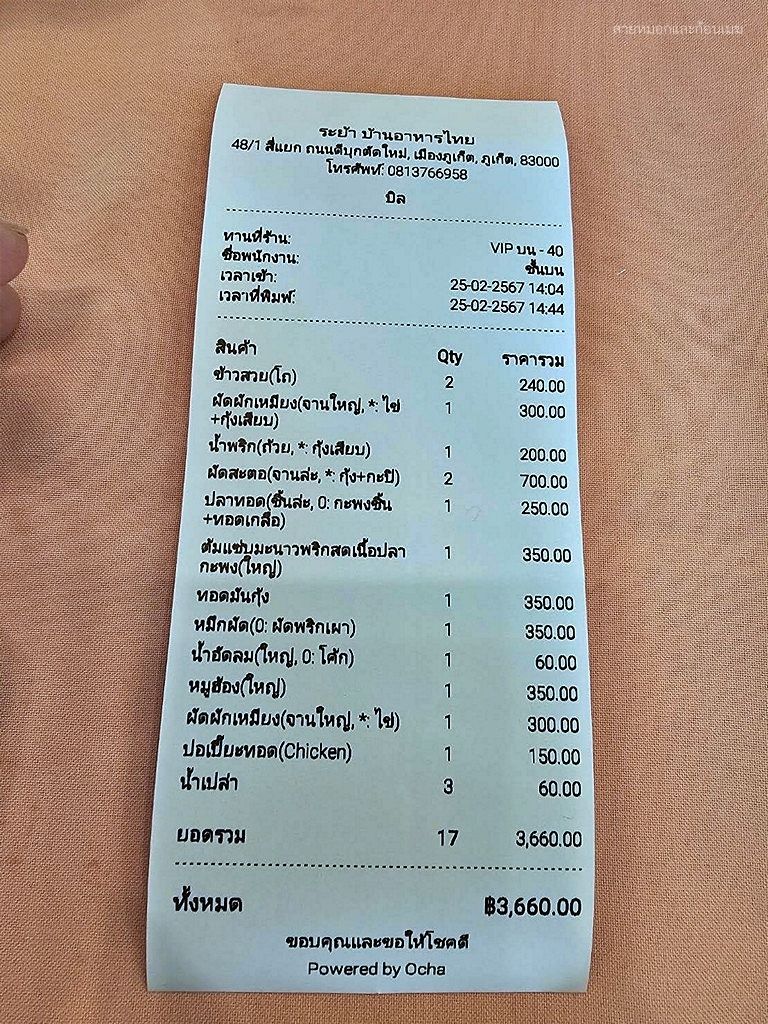 สายหมอกและก้อนเมฆ
ระย้า บ้านอาหารไทย
48/1 สี่แยก ถนนดีบุกตัดใหม่, เมืองภูเก็ต, ภูเก็ต, 83000
โทรศัพท์: 0813766958
บิล
ทานที่ร้าน: VIP บน - 40
ชื่อพนักงาน: ชั้นบน
เวลาเข้า: 25-02-2567 14:04
เวลาที่พิมพ์: 25-02-2567 14:44
สินค้า Qty ราคารวม
ข้าวสวย(โถ) 2 240.00
ผัดผักเหมียง(จานใหญ่, *: ไข่ 1 300.00
+กุ้งเสียบ)
น้ำพริก(ถ้วย, *: กุ้งเสียบ) 1 200.00
ผัดสะตอ(จานล่ะ, *: กุ้ง+กะปิ) 2 700.00
ปลาทอด(ชิ้นล่ะ, 0: กะพงชิ้น 1 250.00
+ทอดเกลือ)
ต้มแซ่บมะนาวพริกสดเนื้อปลา 1 350.00
กะพง(ใหญ่)
ทอดมันกุ้ง 1 350.00
หมึกผัด(0: ผัดพริกเผา) 1 350.00
น้ำอัดลม(ใหญ่, 0: โค้ก) 1 60.00
หมูฮ้อง(ใหญ่) 1 350.00
ผัดผักเหมียง(จานใหญ่, *: ไข่) 1 300.00
ปอเปี๊ยะทอด(Chicken) 1 150.00
น้ำเปล่า 3 60.00
ยอดรวม 17 3,660.00
ทั้งหมด ฿3,660.00
ขอบคุณและขอให้โชคดี
Powered by Ocha